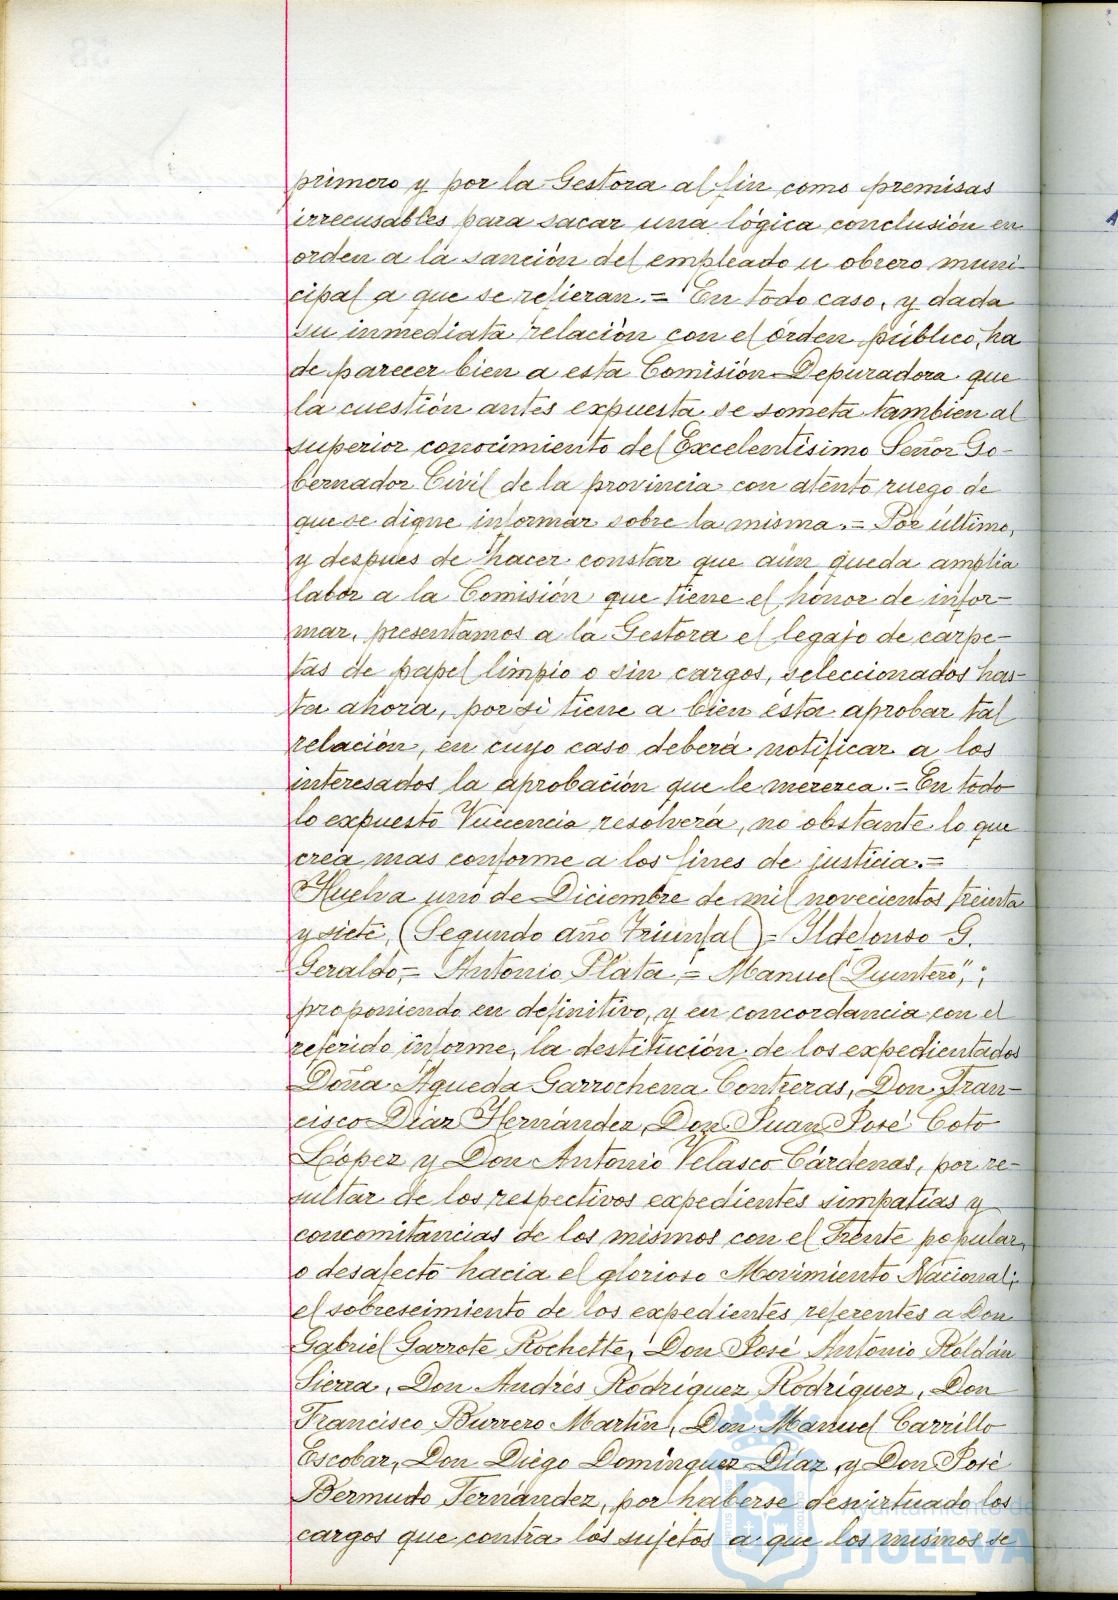 primero y por la Gestora al fin como premisas
irrecusables para sacar una lógica conclusión en
orden a la sanción del empleado u obrero muni-
cipal a que se refieran.= En todo caso, y dada
su inmediata relación con el órden público, ha
de parecer bien a esta Comisión Depuradora que
la cuestión antes expuesta se someta tambien al
superior conocimiento del Excelentísimo Señor Go-
bernador Civil de la provincia con atento ruego de
que se digne informar sobre la misma.= Por último,
y despues de hacer constar que aún queda amplia
labor a la Comisión que tiene el honor de infor-
mar, presentamos a la Gestora el legajo de carpe-
tas de papel limpio o sin cargos, seleccionados has-
ta ahora, por si tiene a bien ésta aprobar tal
relación, en cuyo caso deberá notificar a los
interesados la aprobación que le merezca.= En todo
lo expuesto Vuecencia resolverá, no obstante lo que
crea mas conforme a los fines de justicia.=
Huelva uno de Diciembre de mil novecientos treinta
y siete, (Segundo año Triunfal)= Ildefonso G.
Geraldo,= Antonio Plata,= Manuel Quintero",;
proponiendo en definitivo, y en concordancia con el
referido informe, la destitución de los expedientados
Doña Agueda Garrochena Contreras, Don Fran-
cisco Diaz Hernández, Don Juan José Coto
López y Don Antonio Velasco Cárdenas, por re-
sultar de los respectivos expedientes simpatías y
concomitancias de los mismos con el Frente popular,
o desafecto hacia el glorioso Movimiento Nacional;
el sobreseimiento de los expedientes referentes a Don
Gabriel Garrote Rochette, Don José Antonio Roldán
Sierra, Don Andrés Rodríguez Rodríguez, Don
Francisco Burrero Martín, Don Manuel Carrillo
Escobar, Don Diego Domínguez Díaz, y Don José
Bermudo Fernández, por haberse desvirtuado los
cargos que contra los sujetos a que los mismos se
Ayuntamiento de
HUELVA